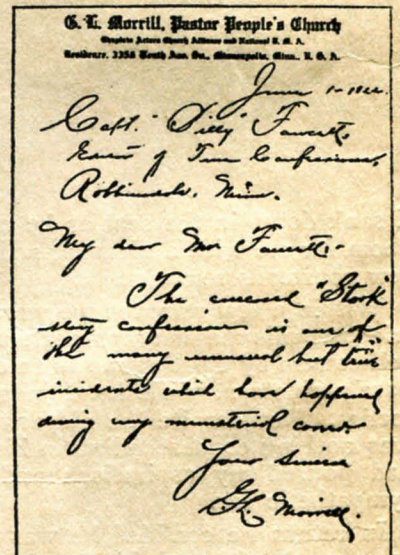 G. L. Morrill, Pastor People's Church
Chaplain Actors Church Alliance and National B. M. A.
Residence, 3356 Tenth Ave. So., Minneapolis, Minn., U. S. A.
June 1 - 1922
Capt. "Billy" Fawcett,
Editor of True Confessions,
Robbinsdale, Minn.
My dear Mr Fawcett:-
The enclosed "Stork"
story confession is one of
the many unusual but true
incidents which have happened
during my ministerial career.
Yours sincere
G L Morrill.